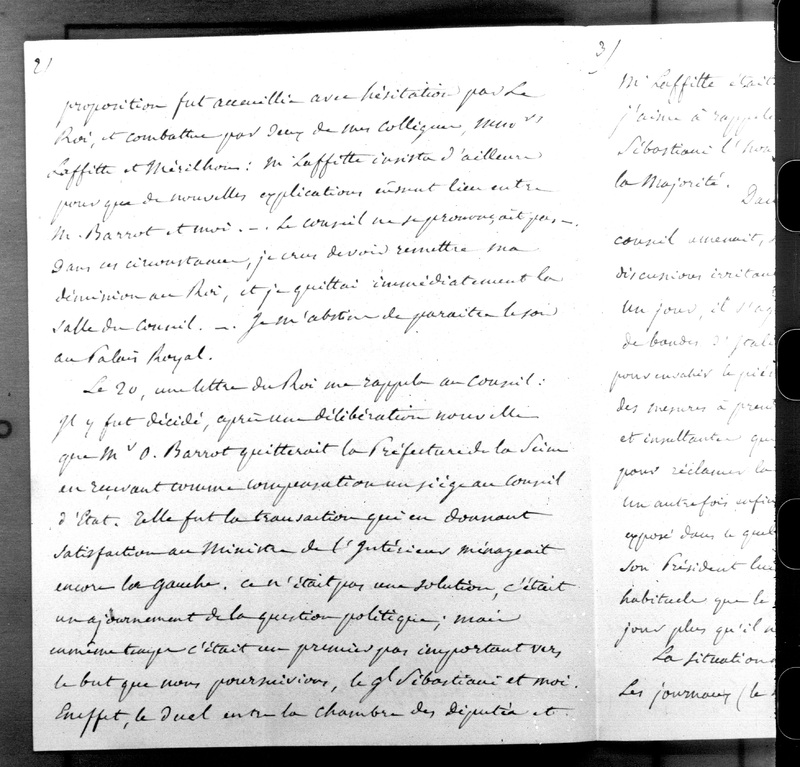 2/
proposition fut accueillie avec hésitation par Le
Roi, et combattue par deux de mes collègues,
Laffitte et Mérilhou : Mr Laffitte insista d'ailleurs
pour que de nouvelles explications eussent lieu entre
M. Barrot et moi. —. Le conseil ne se prononçait pas —.
Dans ces circonstances, je crus devoir remettre ma
démission au Roi, et je quittai immédiatement la
salle du Conseil. —. Je m'abstins de paraitre le soir
au Palais Royal.
Le 20, une lettre du Roi me rappela au Conseil :
Il y fut décidé, après une délibération nouvelle
que Mr O. Barrot quitterait la Préfecture de la Seine
en reçevant comme compensation un siège au Conseil
d'Etat. Telle fut la transaction qui en donnant
satisfaction au Ministre de l'Intérieur ménageait
encore la Gauche. Ce n'était pas une solution, c'était
un ajournement de la question politique ; mais
en même temps c'était un premier pas important vers
le but que nous poursuivions, le gl Sébastiani et moi.
En effet, le duel entre la chambre des députés et
3/
Mr Laffitte était
j'aime à rappele
Sébastiani l'hon
la Majorité.
Dan
conseil amenait,
discussions irritan
un jour, il s'ag
de bandes d'Itali
pour envahir le pié
des mesures à pren
et insultantes que
pour réclamer la
un autre fois enfin
exposé dans le quel
son Président lui
habituels que le
jour plus qu'il n
La situation
Les journaux (le